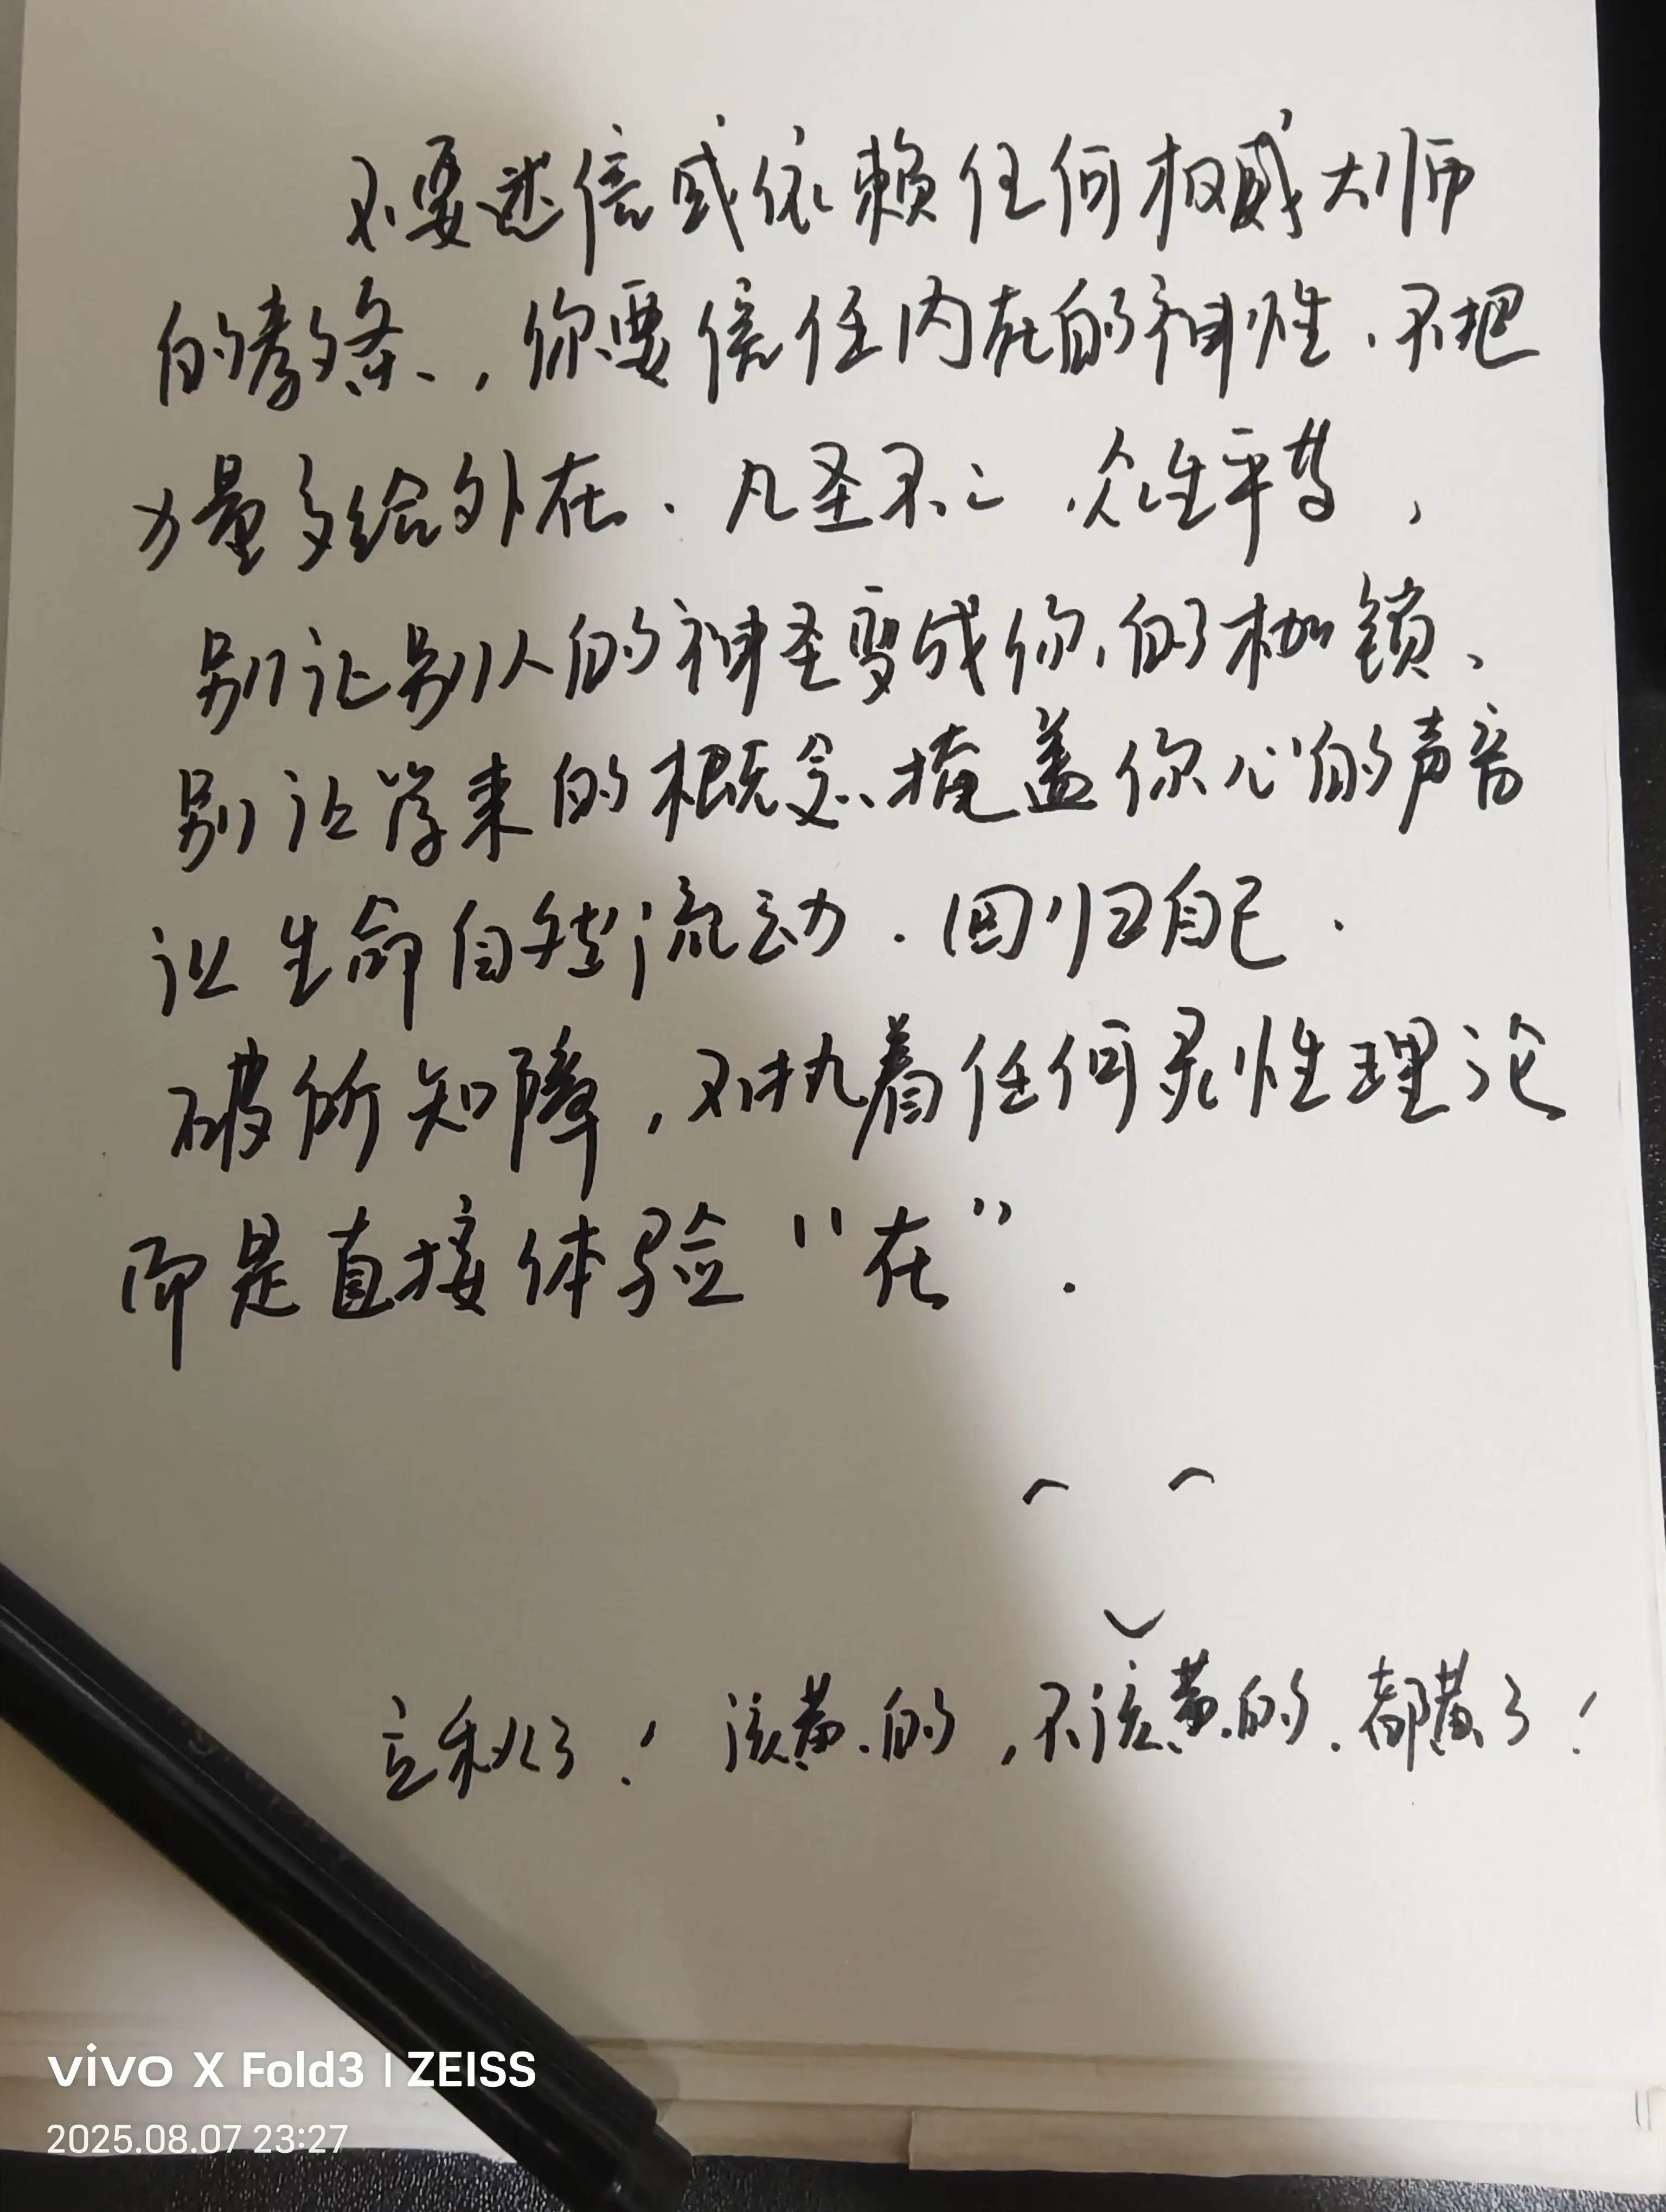 不要迷信或依赖任何权威大师
的教条、，你要信任内在的神性．不把
力量交给外在．凡圣不二．众生平等，
别让别人的神圣变成你的枷锁、
别让学来的概念掩盖你心的声音
让生命自然流动．回归自己．
破所知障，不执着任何灵性理论
而是直接体验“在”．
立秋了！该黄的，不该黄的．都黄了！
vivo X Fold3 | ZEISS
2025.08.07 23:27